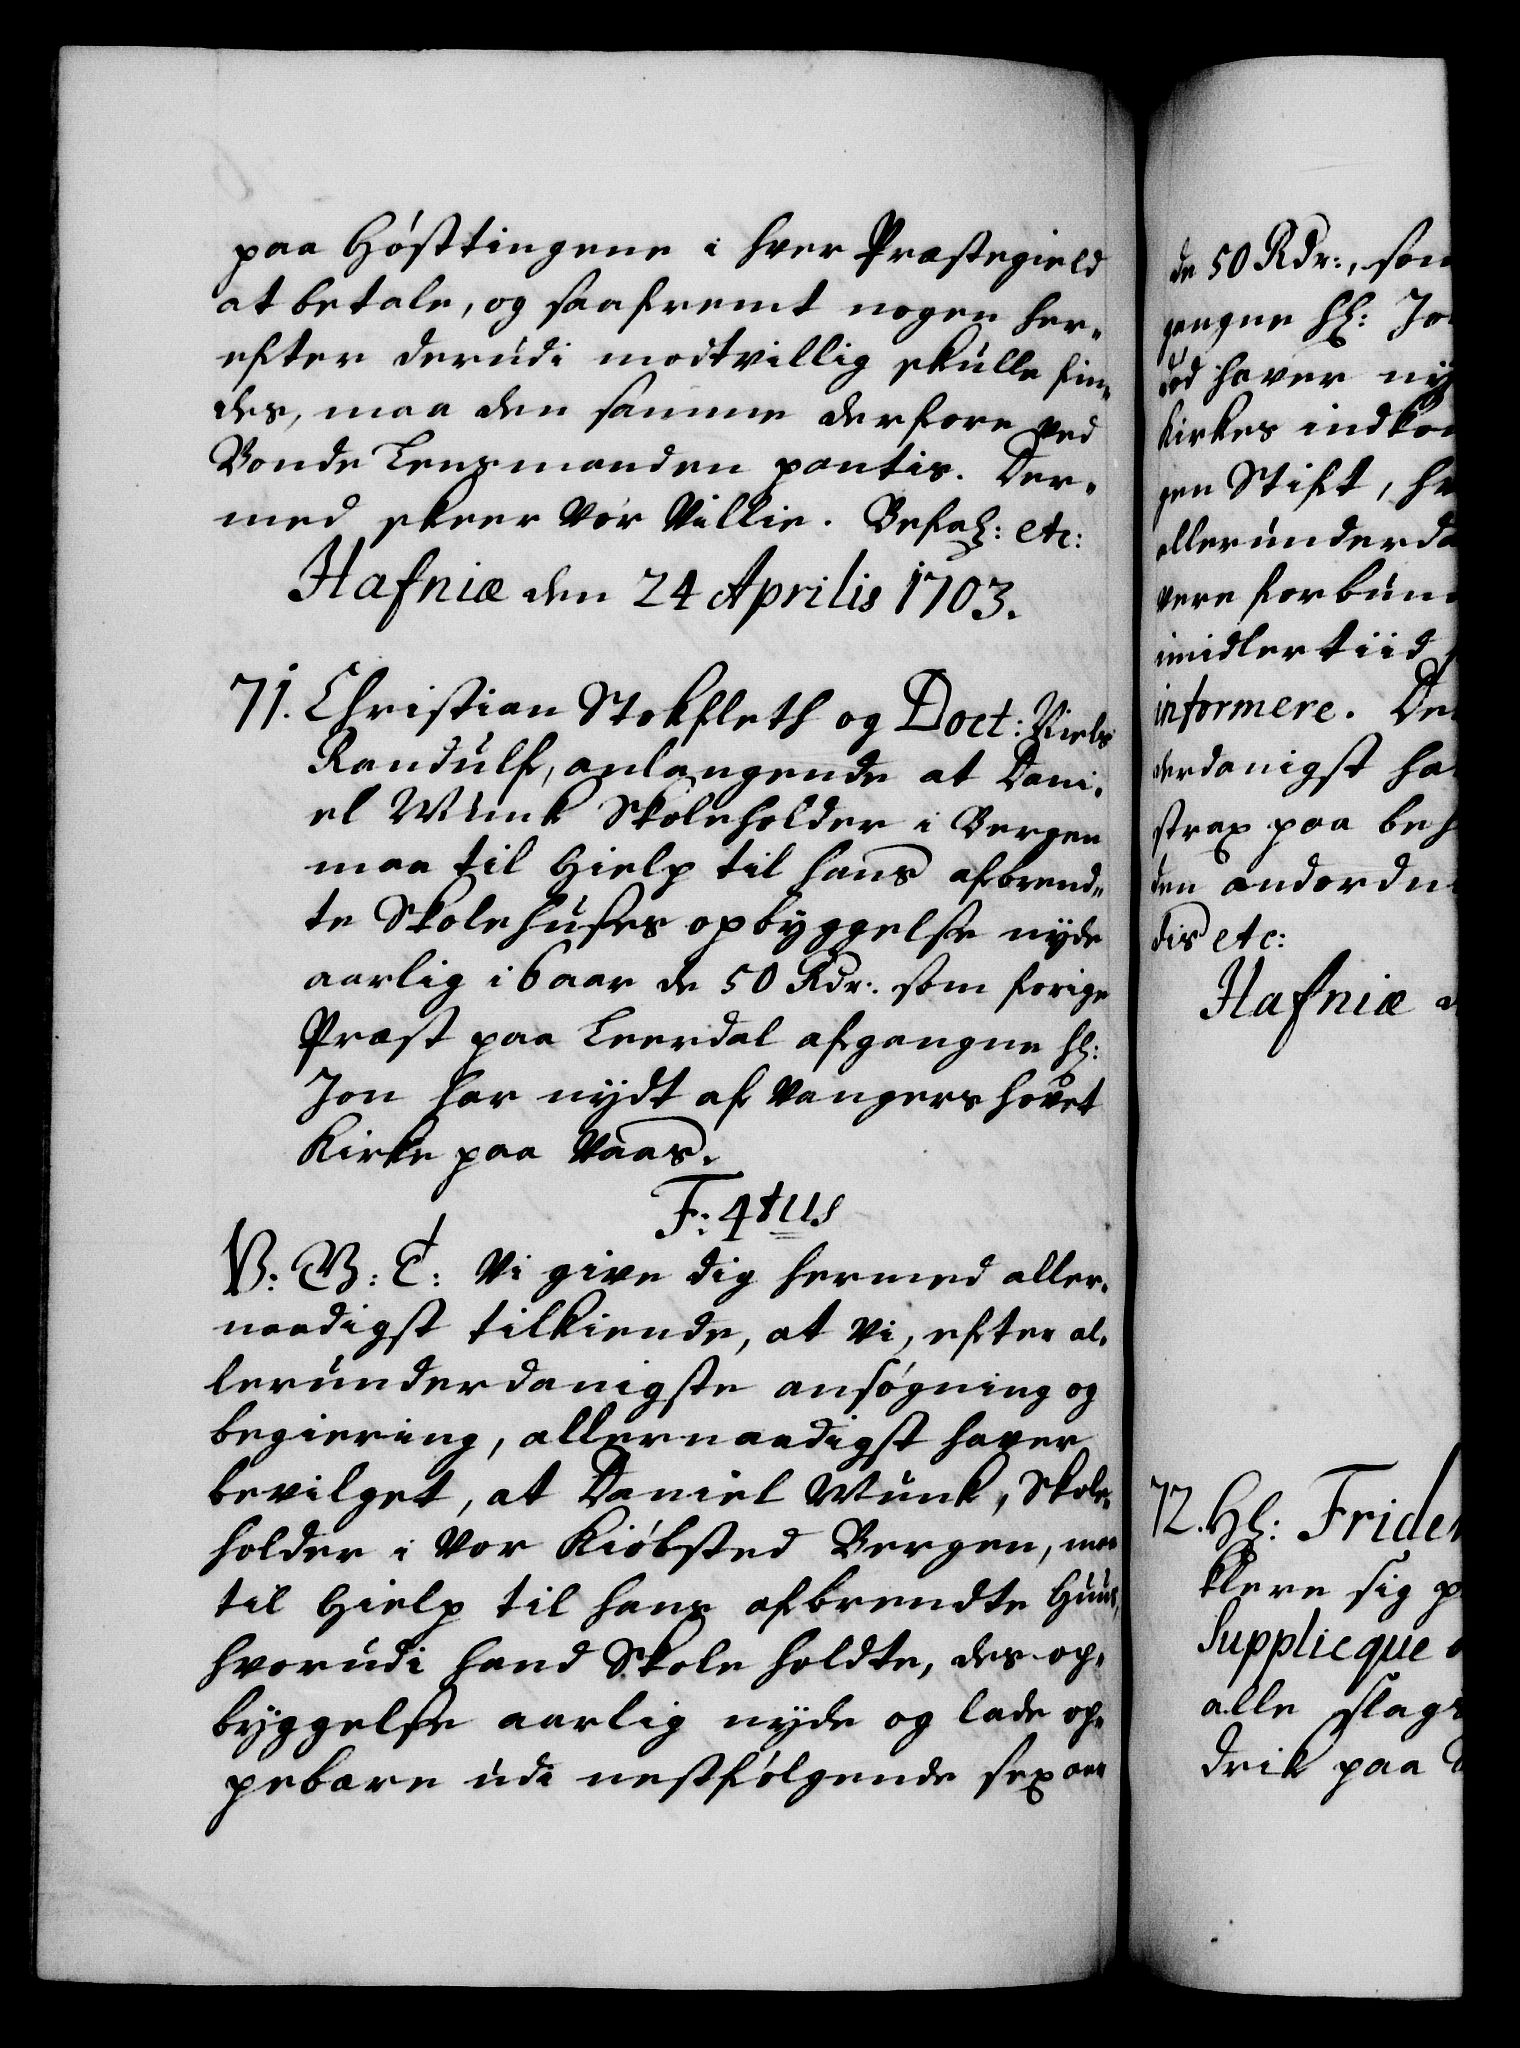 paa Hósttingene i hver Præstegield
at betale, og saafremt nogen her,
efter derudi modtvillig skulle fin,
des, maa den samme derfore ved
Bonde Lensmanden pantis. Der,
med skeer Vor Villie. Befah: etc:
Hafniæ den 24 Aprilis 1703.
71. Christian Stokfleth og Doct: Niels
Randulf, anlangende at Dani,
el Munk Skoleholder i Bergen
maa til Hielp til hans afbrend,
te Skolehuses opbyggelse nyde
aarlig i 6 aar de 50 Rdr: som forige
Præst paa Leerdal afgangne hh:
Jon har nydt af Vangers hovet
Kirke paa Vaas.
F: 4tus
V: G: T: Vi give dig hermed aller,
naadigst tilkiende, at Vi, efter al,
lerunderdanigste ansógning og
begiering, allernaadigst haver
bevilget, at Daniel Munk, Skole,
holder i Vor Kióbsted Bergen, maa
til Hielp til hans afbrendte Huus,
hvorudi hand Skole holdte, des op,
byggelse aarlig nyde og lade op,
pebære udi nestfólgende sex aar
de 50 Rdr:, som
gangne hh: Jo
haver ny
Kirkes indko
gen Stift, h
allerunderda
vere forbun
imidlertiid
informere. De
derdanigst ha
strax paa beh
den andordn
dis etc:
Hafniæ
72. Hh: Frider
klere sig p
Supplicque
alle slags
drik paa